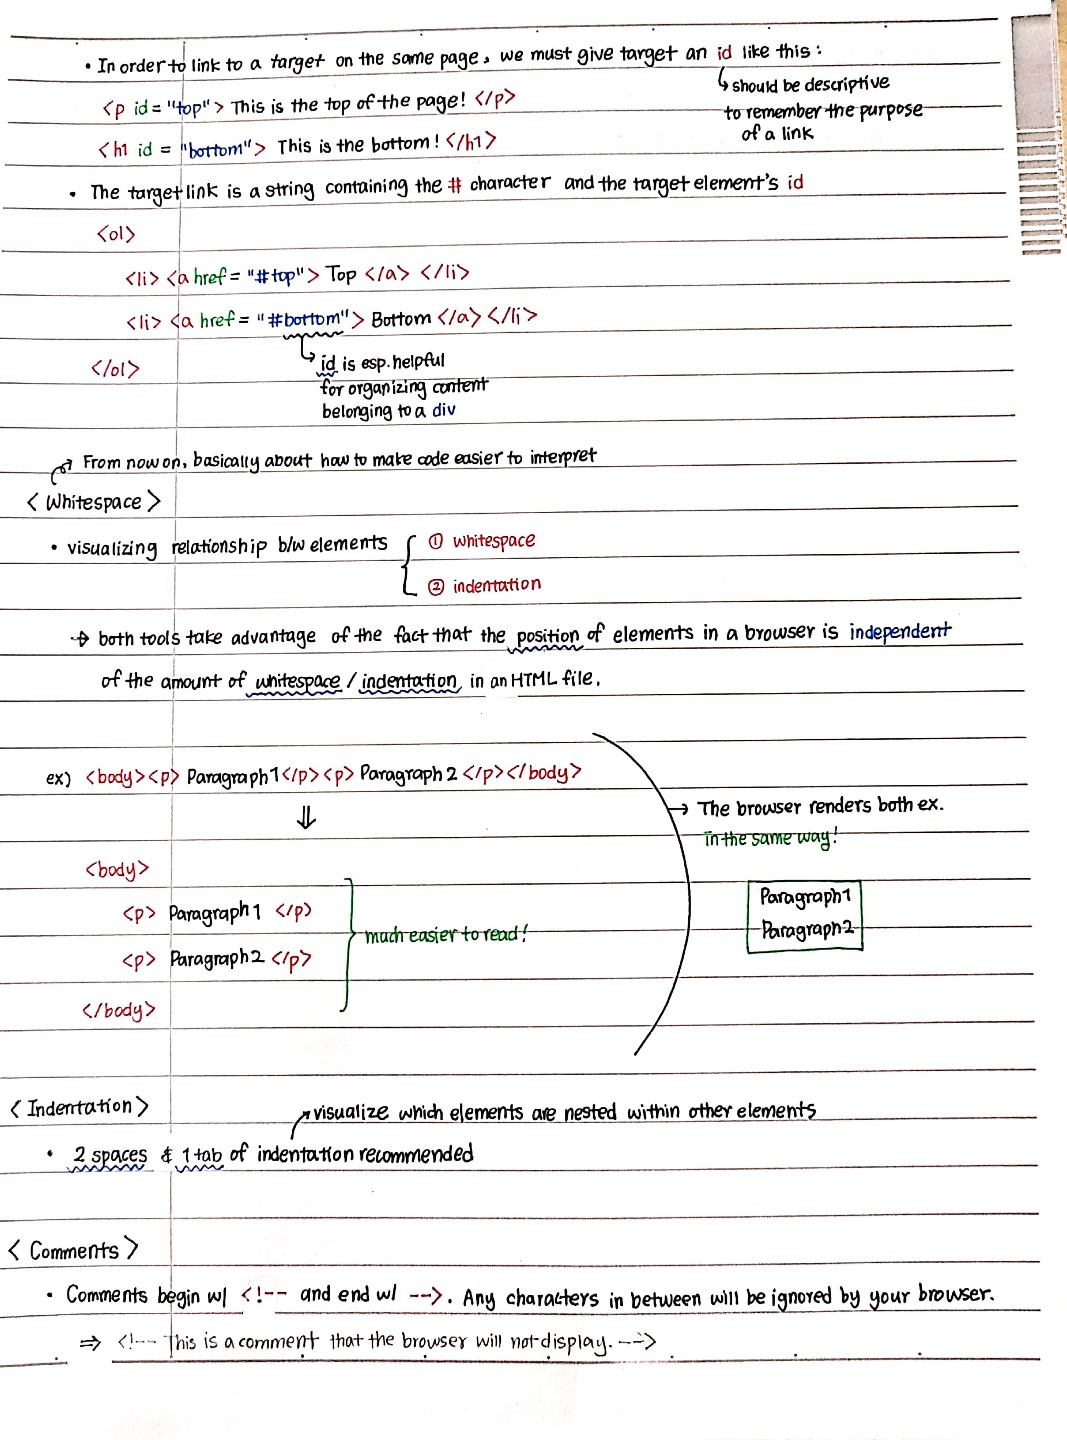 • In order to link to a target on the same page, we must give target an id like this :
↳ should be descriptive
to remember the purpose
of a link
<p id = "top"> This is the top of the page! </p>
<h1 id = "bottom"> This is the bottom! </h1>
• The target link is a string containing the # character and the target element's id
<ol>
<li> <a href = "#top"> Top </a> </li>
<li> <a href = "#bottom"> Bottom </a> </li>
↳ id is esp. helpful
for organizing content
belonging to a div
</ol>
From now on, basically about how to make code easier to interpret
< Whitespace >
• visualizing relationship b/w elements { ① whitespace
② indentation
→ both tools take advantage of the fact that the position of elements in a browser is independent
of the amount of whitespace / indentation in an HTML file.
ex) <body><p> Paragraph1</p><p> Paragraph 2 </p></body>
⇓
<body>
<p> Paragraph 1 </p>
<p> Paragraph 2 </p>
</body>
much easier to read!
→ The browser renders both ex.
in the same way!
Paragraph1
Paragraph2
< Indentation >
visualize which elements are nested within other elements
• 2 spaces & 1 tab of indentation recommended
< Comments >
• Comments begin w/ <!-- and end w/ -->. Any characters in between will be ignored by your browser.
⇒ <!-- This is a comment that the browser will not display. -->